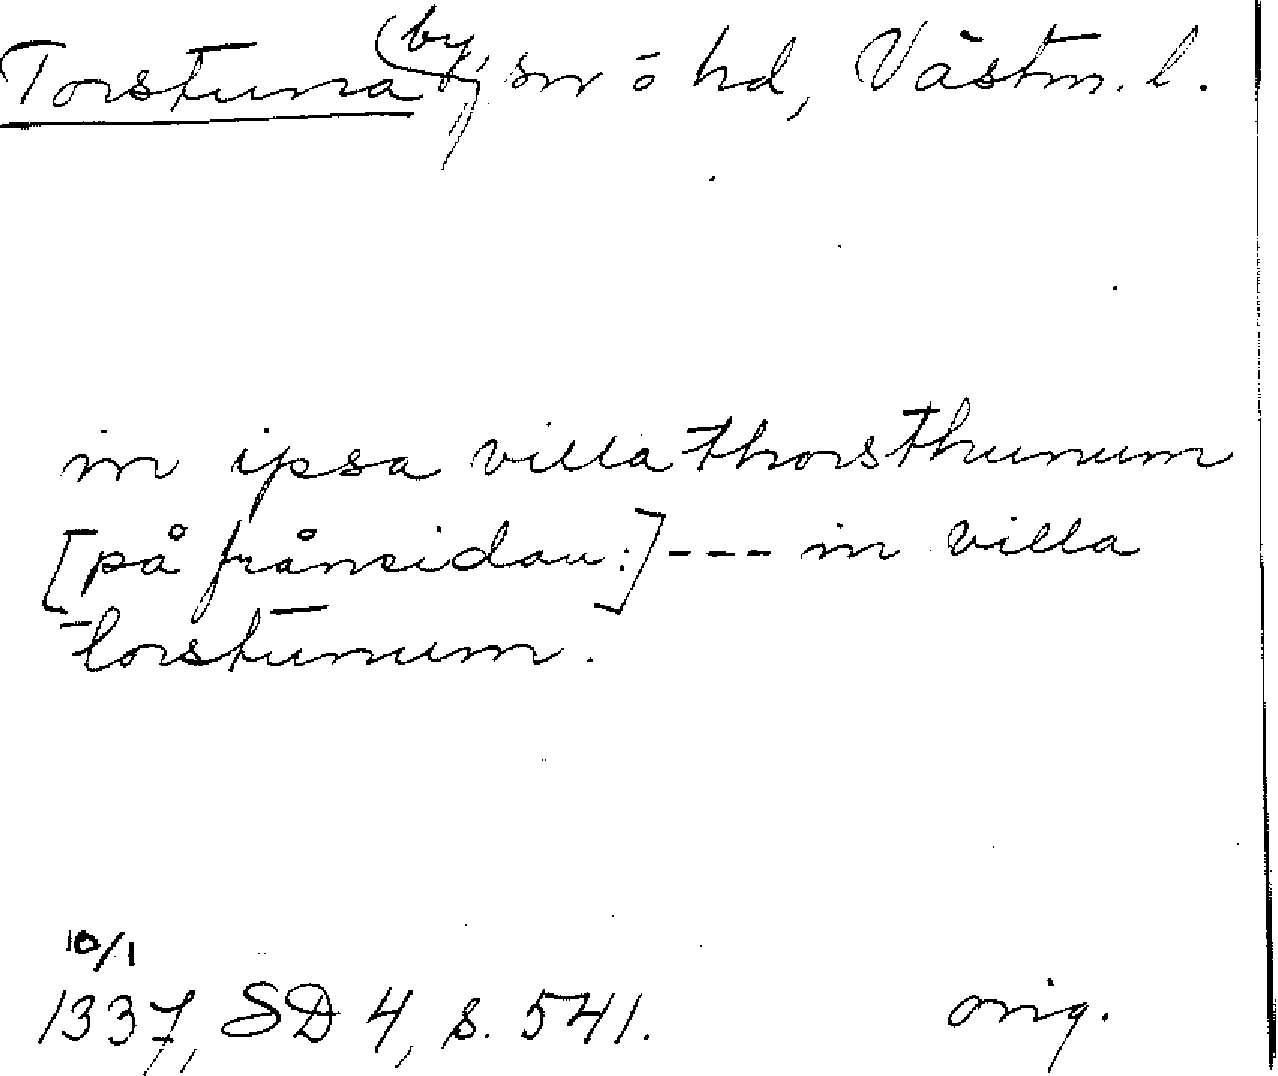 Torstuna by, sn o hd, Västm. l.
in ipsa villa thorsthunum
[på frånsidan:] --- in villa
torstunum.
10/1
1337, SD 4, s. 541. orig.